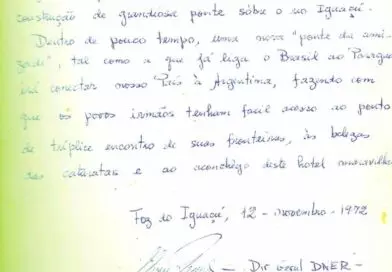 construção de grandiosa ponte sôbre o rio Iguaçú.
Dentro de pouco tempo, uma nova "ponte da ami-
zade", tal como a que já liga o Brasil ao Paraguai
irá conectar nosso País à Argentina, fazendo com
que os povos irmãos tenham facil acesso ao ponto
de tríplice encontro de suas fronteiras, às belezas
das cataratas e ao aconchêgo deste hotel maravilho
Foz do Iguaçú, 12 - novembro - 1972
— Dir Geral DNER -